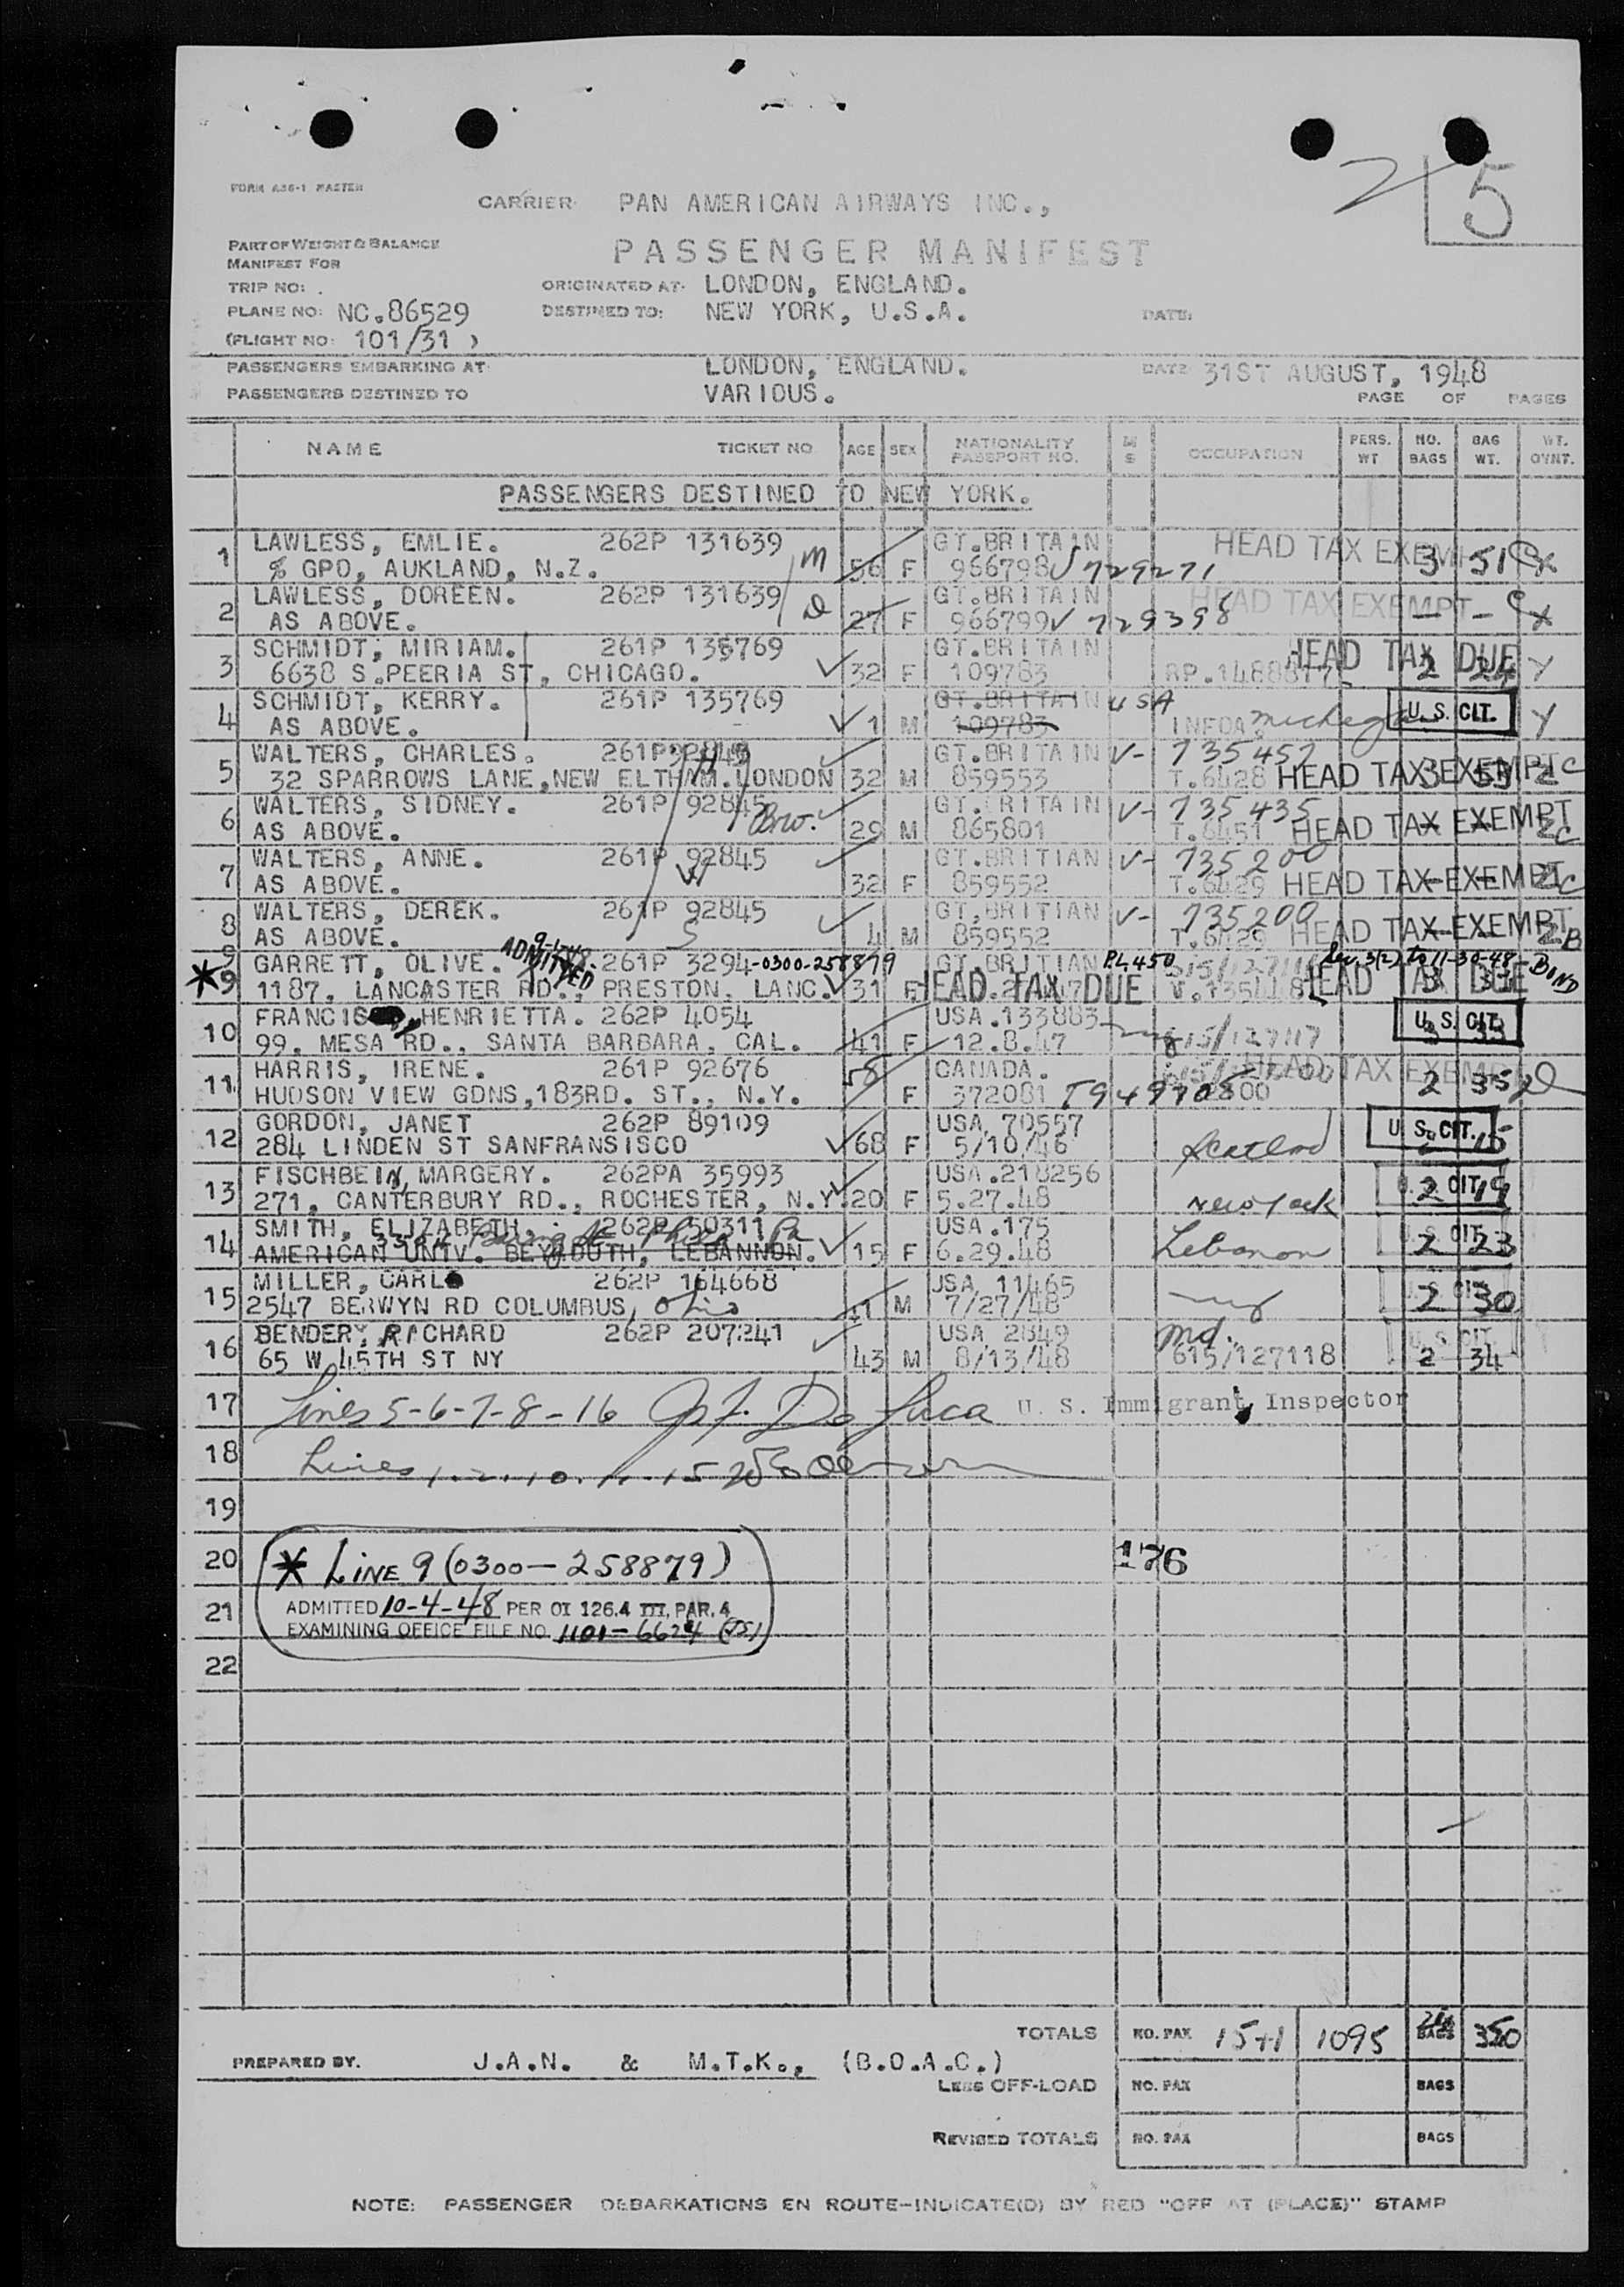 25
FORM A36-1 MASTER
CARRIER PAN AMERICAN AIRWAYS INC.,
PART OF WEIGHT & BALANCE
MANIFEST FOR
PASSENGER MANIFEST
TRIP NO:
ORIGINATED AT. LONDON, ENGLAND.
PLANE NO: NC.86529
DESTINED TO: NEW YORK, U.S.A.
DATE:
(FLIGHT NO: 101/31 )
PASSENGERS EMBARKING AT LONDON, ENGLAND. DATE 31ST AUGUST, 1948
PASSENGERS DESTINED TO VARIOUS. PAGE OF PAGES
NAME TICKET NO AGE SEX NATIONALITY PASSPORT NO. M S OCCUPATION PERS. WT NO. BAGS BAG WT. WT.
PASSENGERS DESTINED TO NEW YORK.
1 LAWLESS, EMLIE. 262P 131639 M 56 F GT.BRITAIN HEAD TAX EXEMPT 3 51
% GPO, AUKLAND, N.Z. 966798 729271
2 LAWLESS, DOREEN. 262P 131639 D 27 F GT.BRITAIN HEAD TAX EXEMPT - -
AS ABOVE. 966799 729398
3 SCHMIDT, MIRIAM. 261P 135769 32 F GT.BRITAIN HEAD TAX DUE 2 24 Y
6638 S.PEERIA ST, CHICAGO. 109783
4 SCHMIDT, KERRY. 261P 135769 1 M GT.BRITAIN USA U.S. CIT. Y
AS ABOVE. 109783
5 WALTERS, CHARLES. 261P GT.BRITAIN V- 735457
32 SPARROWS LANE,NEW ELTHAM.LONDON 32 M 859553 T.6428 HEAD TAX EXEMPT
6 WALTERS, SIDNEY. 261P 92845 Bro. GT.BRITAIN V- 735435
AS ABOVE. 29 M 865801 T.6451 HEAD TAX EXEMPT
7 WALTERS, ANNE. 261P 92845 W GT.BRITIAN V- 735200
AS ABOVE. 32 F 859552 T.6429 HEAD TAX EXEMPT
8 WALTERS, DEREK. 261P 92845 S GT.BRITIAN V- 735200
AS ABOVE. 4 M 859552 T.6429 HEAD TAX EXEMPT
9 ADMITTED
*9 GARRETT, OLIVE. 261P 3294-0300-258879 GT.BRITIAN PL 450 to 11-30-48-BOND
1187. LANCASTER RD., PRESTON, LANC. 31 F HEAD TAX DUE HEAD TAX DUE
10 FRANCIS, HENRIETTA. 262P 4054 USA.133883 U.S. CIT.
99. MESA RD., SANTA BARBARA, CAL. 41 F 12.8.47
11 HARRIS, IRENE. 261P 92676 58 CANADA. HEAD TAX EXEMPT
HUDSON VIEW GDNS,183RD. ST., N.Y. F 372081 2 35
12 GORDON, JANET 262P 89109 USA 70557 U.S. CIT.
284 LINDEN ST SANFRANSISCO 68 F 5/10/46 Scotland
13 FISCHBEIN, MARGERY. 262PA 35993 USA.218256 U.S. CIT.
271, CANTERBURY RD., ROCHESTER, N.Y. 20 F 5.27.48 New York 2 19
14 SMITH, ELIZABETH. 262P 50311 USA.175 U.S. CIT.
AMERICAN UNIV. BEYROUTH, LEBANNON. 15 F 6.29.48 Lebanon 2 23
15 MILLER, CARL 262P 164668 USA 11465 U.S. CIT.
2547 BERWYN RD COLUMBUS, Ohio M 7/27/48 ny 2 30
16 BENDERY, RICHARD 262P 207241 USA 2849 Md. U.S. CIT.
65 W 45TH ST NY 43 M 8/13/48 615/127118 2 34
17 Lines 5-6-7-8-16 De Luca U. S. Immigrant Inspector
18 Lines 1. 2. 10. 11. 15
19
20 * LINE 9 (0300-258879) 176
21 ADMITTED 10-4-48 PER OI 126.4 III, PAR. 4
EXAMINING OFFICE FILE NO. 1101-6624 (JS)
22
TOTALS NO. PAX 15+1 1095 BAGS 350
PREPARED BY. J.A.N. & M.T.K., (B.O.A.C.)
LESS OFF-LOAD NO. PAX BAGS
REVISED TOTALS NO. PAX BAGS
NOTE: PASSENGER DEBARKATIONS EN ROUTE-INDICATE(D) BY RED "OFF AT (PLACE)" STAMP